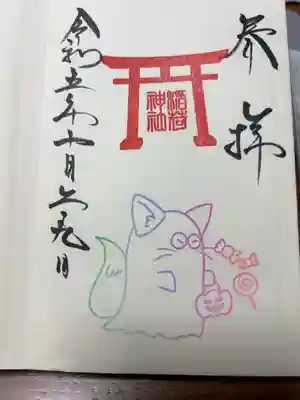 参拝
稲荷
神社
令和五年十月二十九日